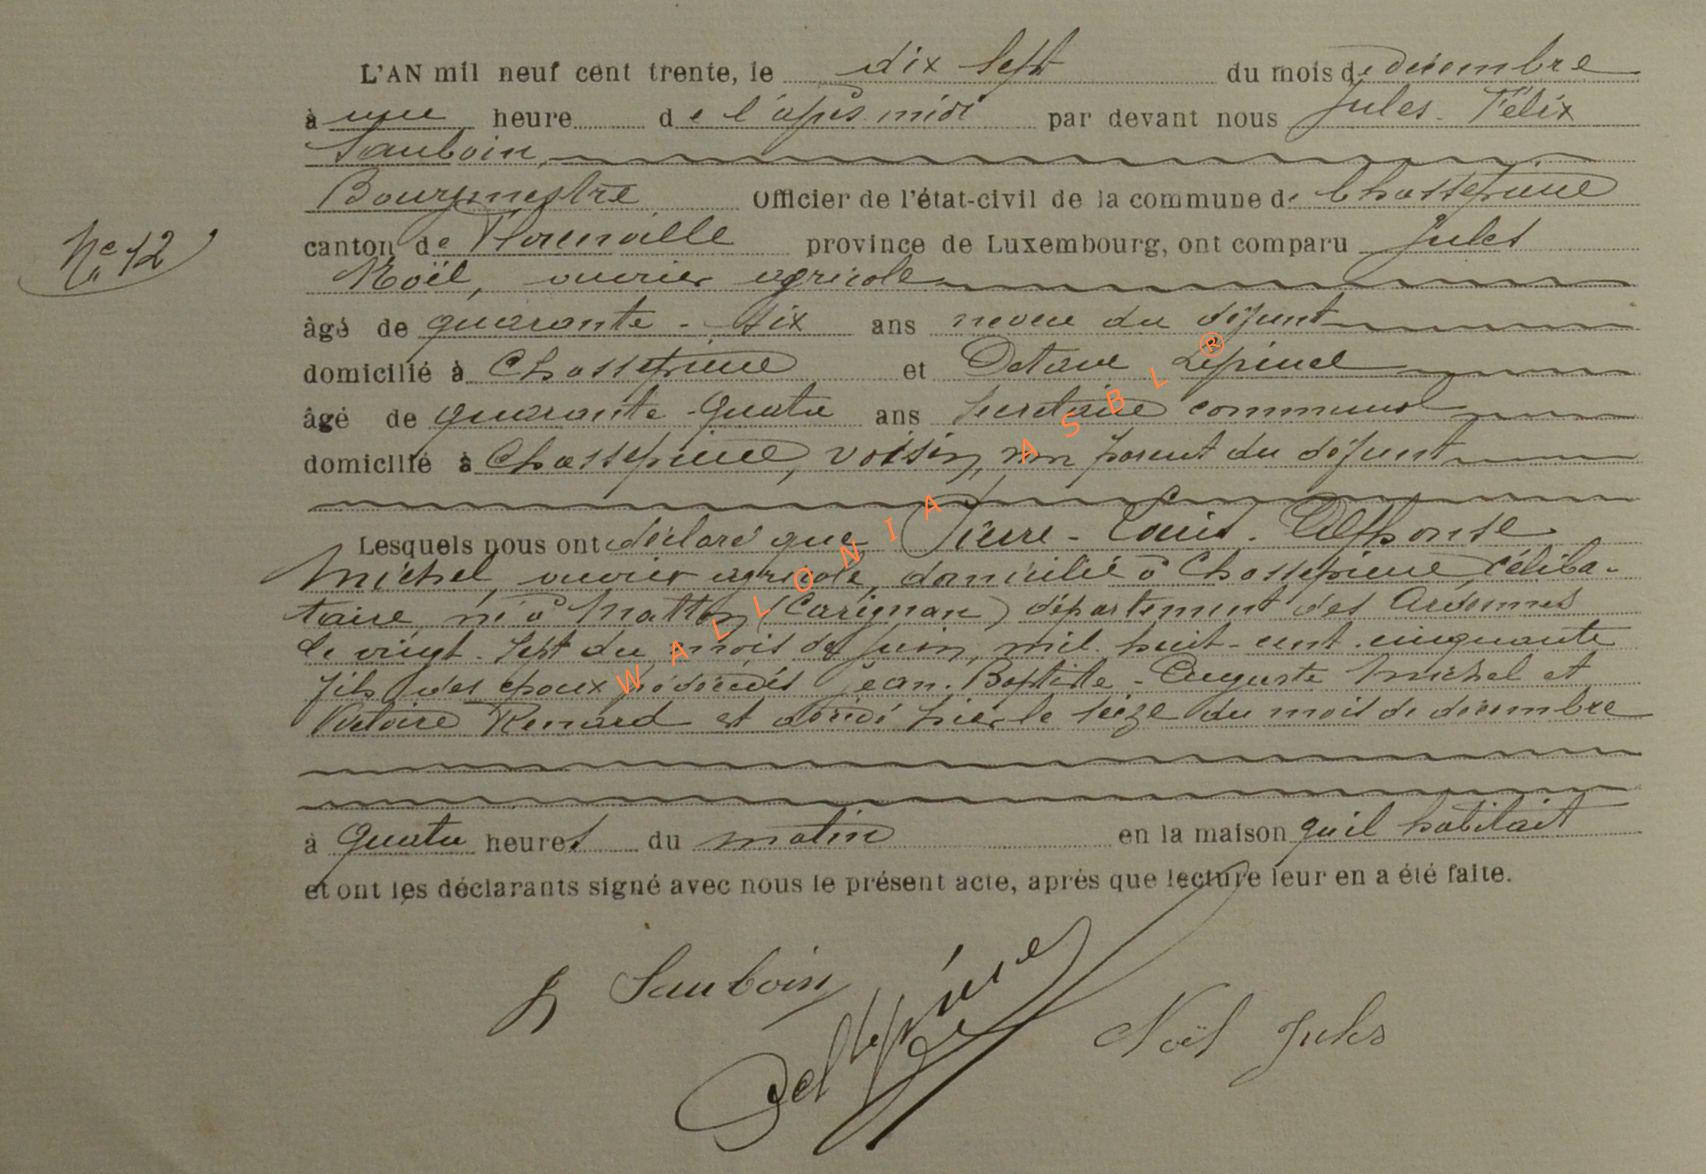 L'AN mil neuf cent trente, le dix sept du mois de décembre
à une heure de l'après midi par devant nous Jules-Félix
Sauboin,
Bourgmestre Officier de l'état-civil de la commune de Chassepierre
N° 12
canton de Florenville province de Luxembourg, ont comparu Jules
Noël, ouvrier agricole
âgé de quarante-six ans neveu du défunt
domicilié à Chassepierre et Octave Lépinel
âgé de quarante-quatre ans secrétaire communal
domicilié à Chassepierre, voisin, non parent du défunt
Lesquels nous ont déclaré que Pierre-Louis-Alphonse
Michel, ouvrier agricole, domicilié à Chassepierre, céliba-
taire né à Matton (Carignan) département des Ardennes
le vingt-sept du mois de juin mil-huit-cent-cinquante
fils des époux prédécédés Jean-Baptiste-Auguste Michel et
Victoire Renard est décédé hier le seize du mois de décembre
à quatre heures du matin en la maison qu'il habitait
et ont les déclarants signé avec nous le présent acte, après que lecture leur en a été faite.
J Sauboin
Noël Jules
WALLONIA ASBL ®